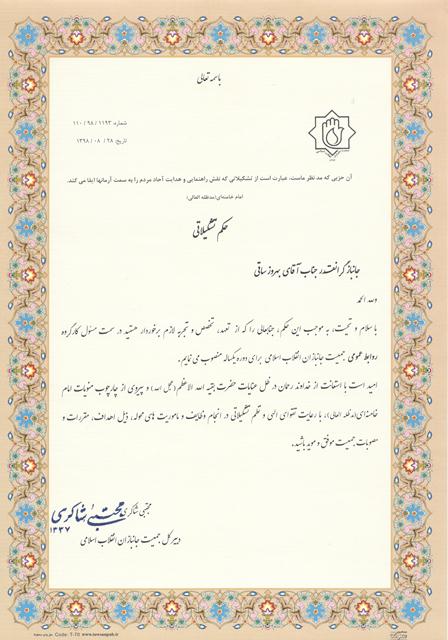 باسمه تعالی
شماره: ۱۱۹۳ / ۹۸ / ۱۱۰
تاریخ: ۲۸ / ۰۸ / ۱۳۹۸
آن حزبی که مد نظر ماست، عبارت است از تشکیلاتی که نقش راهنمایی و هدایت آحاد مردم را به سمت آرمانها ایفا می کند.
امام خامنه‌ای(مدظله العالی)
حکم تشکیلاتی
جانباز گرانقدر جناب آقای بهروز ساقی
ولله الحمد
با سلام و تحیت، به موجب این حکم، جنابعالی را که از تعهد، تخصص و تجربه لازم برخوردار هستید در سمت مسئول کارگروه
روابط عمومی جمعیت جانبازان انقلاب اسلامی برای دوره یکساله منصوب می نمایم.
امید است با استعانت از خداوند رحمان در ظل عنایات حضرت بقیه الله الاعظم(عجل الله) و پیروی از چارچوب منویات امام
خامنه‌ای(مدظله العالی)، با رعایت تقوای الهی و نظم تشکیلاتی در انجام وظایف و ماموریت های محوله، ذیل اهداف، مقررات و
مصوبات جمعیت موفق و موید باشید.
مجتبی شاکری
مجتبی شاکری
۱۳۳۷
دبیرکل جمعیت جانبازان انقلاب اسلامی
Code: T-70 www.tavasapub.ir